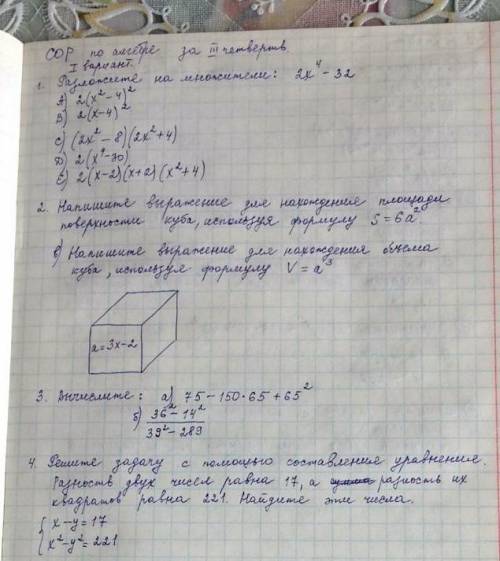 СОР по алгебре за III четверть
I вариант.
1. Разложите на множители: 2x⁴ - 32
A) 2(x² - 4)²
B) 2(x - 4)²
C) (2x² - 8)(2x² + 4)
D) 2(x⁴ - 30)
E) 2(x - 2)(x + 2)(x² + 4)
2. Напишите выражение для нахождения площади
поверхности куба, используя формулу S = 6a².
в) Напишите выражение для нахождения объема
куба, используя формулу V = a³
a = 3x - 2
3. Вычислите: а) 75 - 150·65 + 65²
б) (36² - 14²)/(39² - 289)
4. Решите задачу с помощью составления уравнения.
Разность двух чисел равна 17, а разность их
квадратов равна 221. Найдите эти числа.
{ x - y = 17
x² - y² = 221